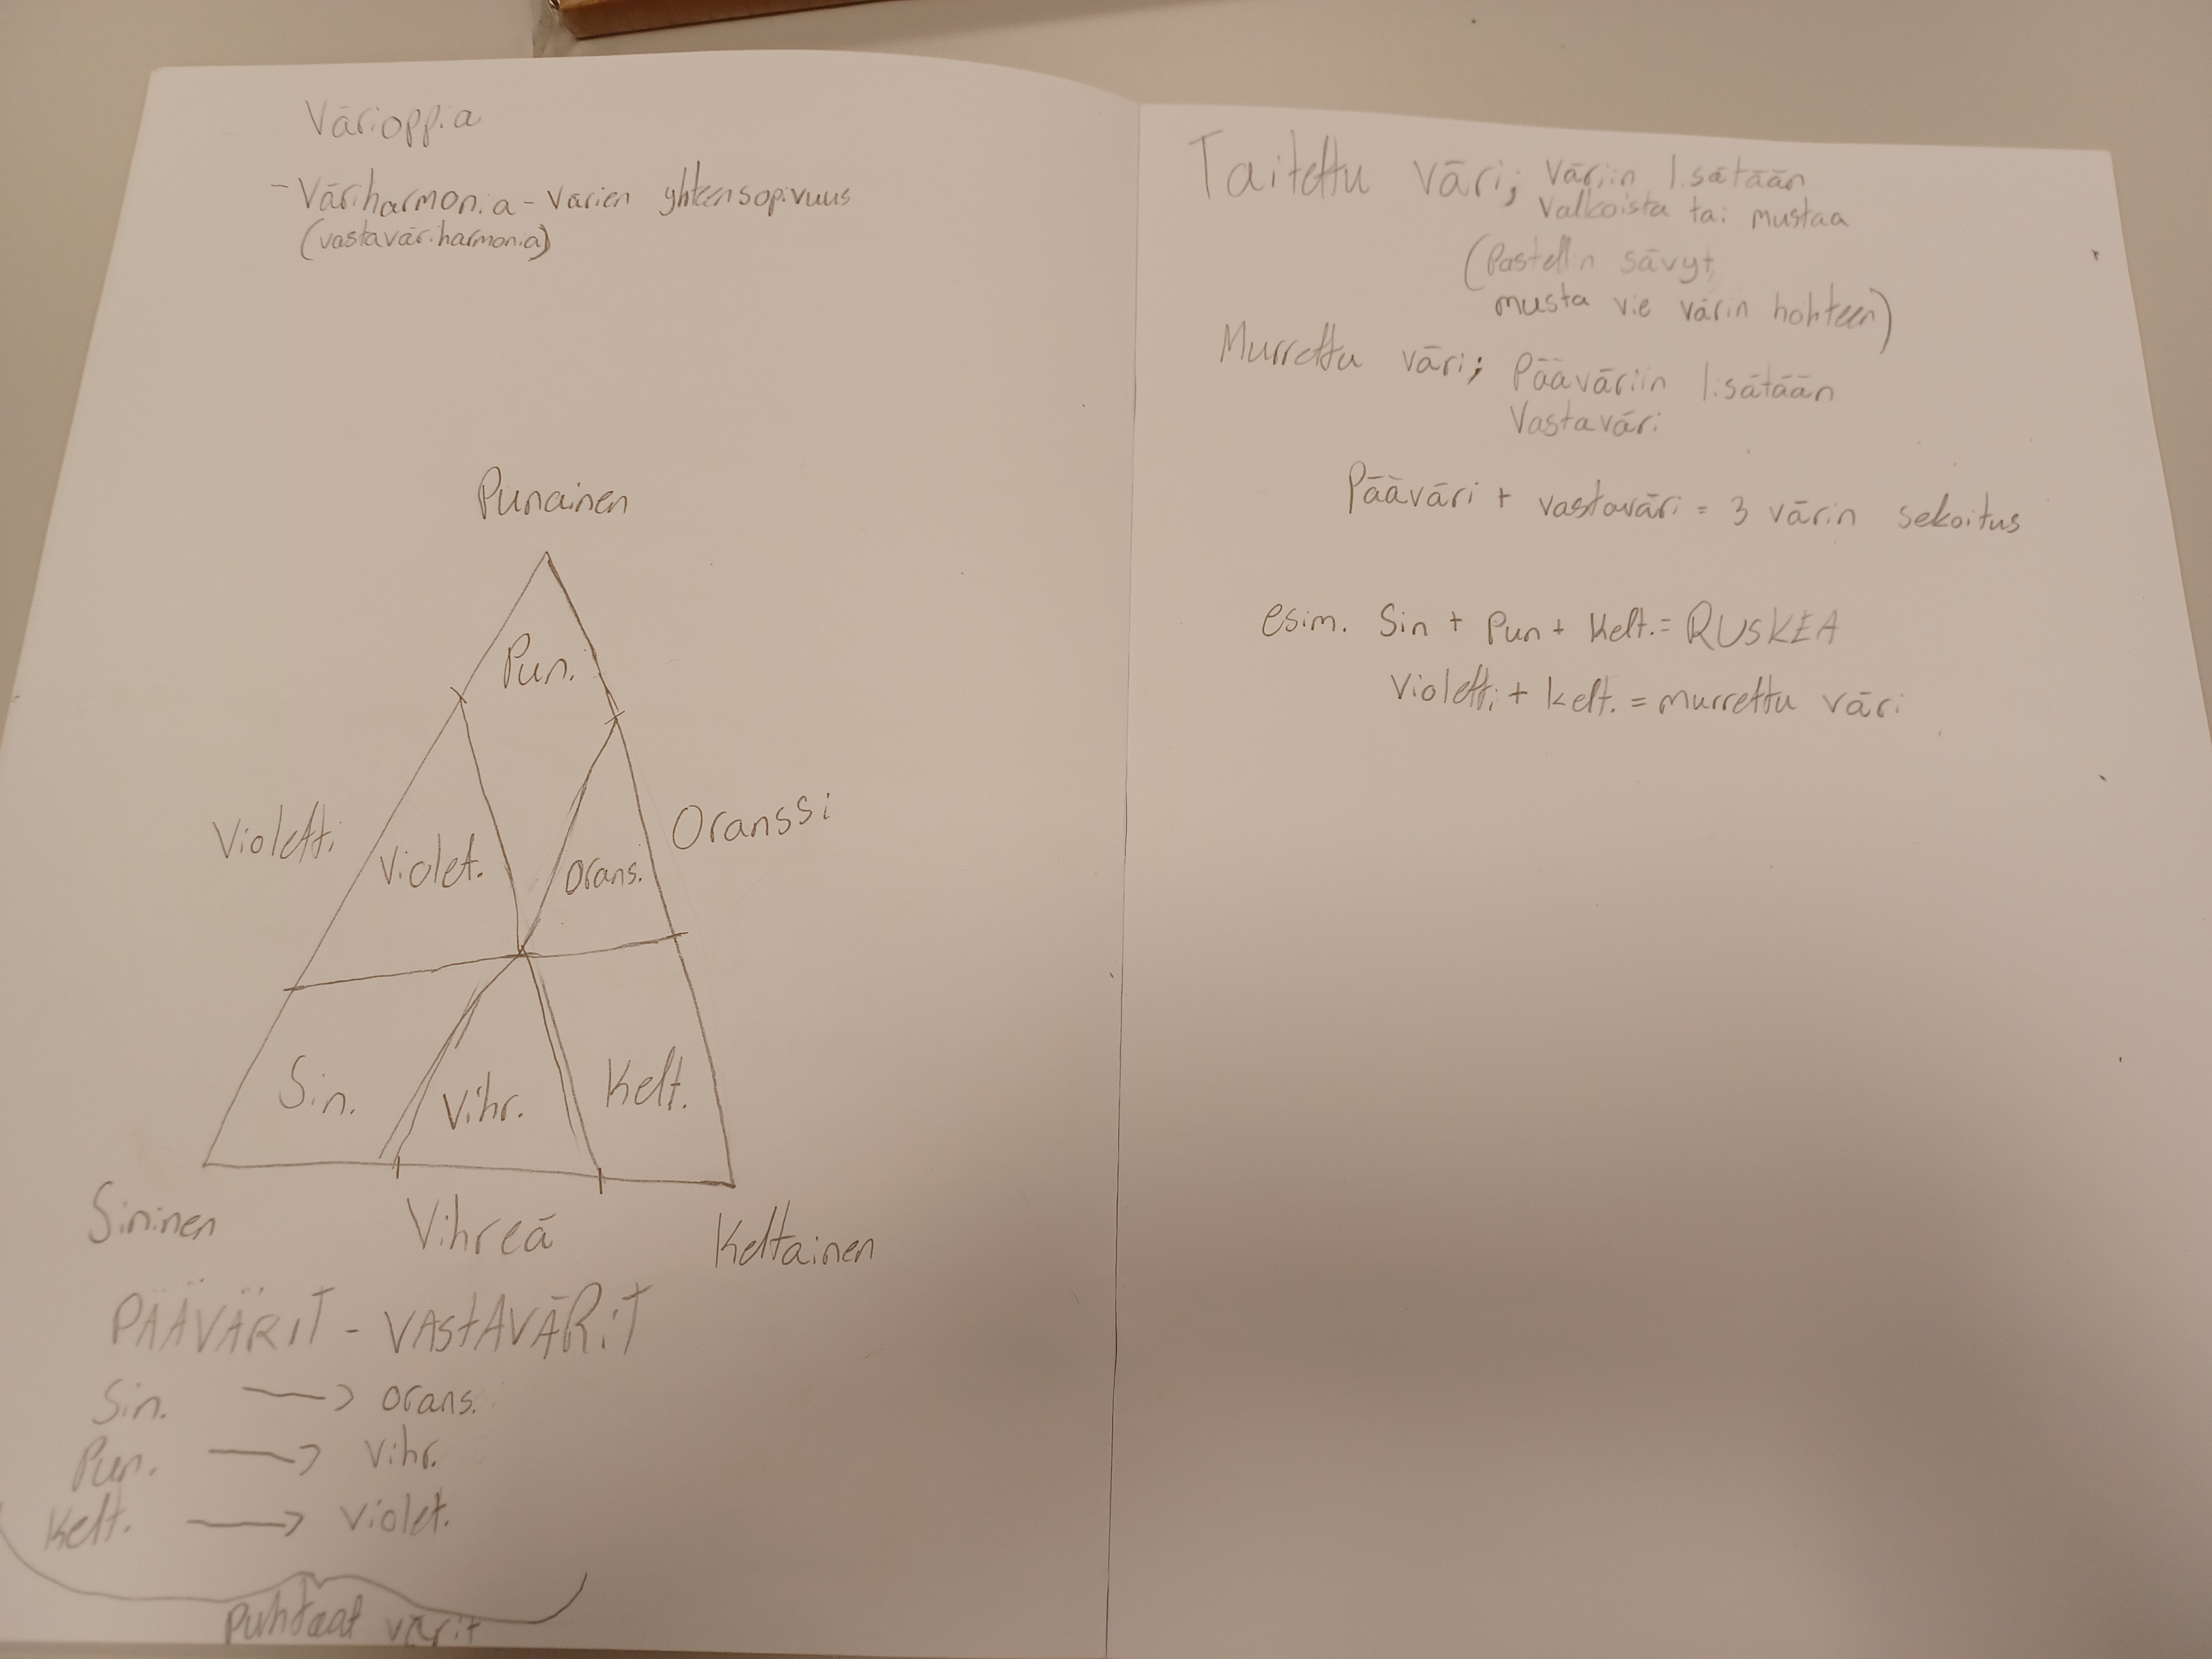 Värioppia
- Väriharmonia - Värien yhteensopivuus
(vastaväriharmonia)
Punainen
Pun.
Violetti
Violet.
Orans.
Oranssi
Sin.
Vihr.
Kelt.
Sininen
Vihreä
Keltainen
PÄÄVÄRIT - VASTAVÄRIT
Sin. → Orans.
Pun. → Vihr.
Kelt. → Violet.
Puhtaat värit
Taitettu väri; Väriin lisätään
Valkoista tai mustaa
(Pastellin sävyt,
musta vie värin hohteen)
Murrettu väri; Pääväriin lisätään
Vastaväri
Pääväri + vastaväri = 3 värin sekoitus
esim. Sin + Pun + Kelt. = RUSKEA
Violetti + kelt. = murrettu väri